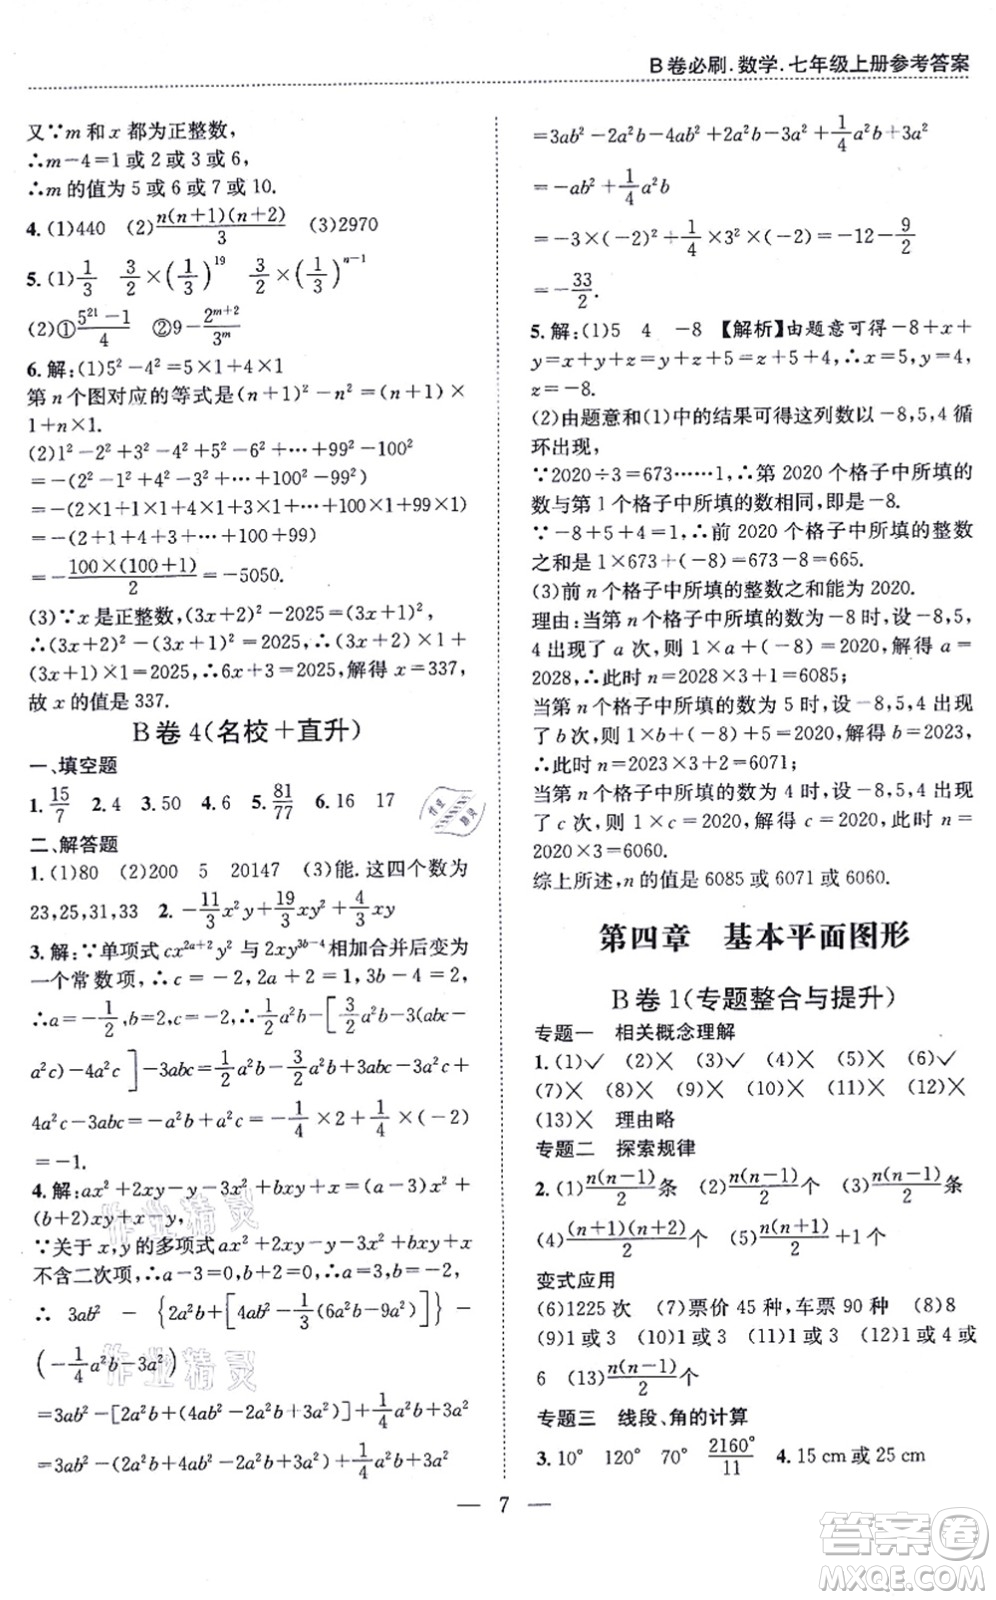 B卷必刷.数学.七年级上册参考答案
又∵m 和 x 都为正整数,
∴m-4=1或2或3或6,
∴m 的值为 5 或 6 或 7 或 10.
4.(1)440 (2)n(n+1)(n+2)/3 (3)2970
5.(1)1/3 3/2×(1/3)^19 3/2×(1/3)^(n-1)
(2)①(5^21-1)/4 ②9-2^(m+2)/3^m
6.解:(1)5²-4²=5×1+4×1
第 n 个图对应的等式是(n+1)²-n²=(n+1)×
1+n×1.
(2)1²-2²+3²-4²+5²-6²+…+99²-100²
=-(2²-1²+4²-3²+…+100²-99²)
=-(2×1+1×1+4×1+3×1+…+100×1+99×1)
=-(2+1+4+3+…+100+99)
=-100×(100+1)/2=-5050.
(3)∵x 是正整数,(3x+2)²-2025=(3x+1)²,
∴(3x+2)²-(3x+1)²=2025,∴(3x+2)×1+
(3x+1)×1=2025,∴6x+3=2025,解得 x=337,
故 x 的值是 337.
B卷4(名校+直升)
一、填空题
1.15/7 2.4 3.50 4.6 5.81/77 6.16 17
二、解答题
1.(1)80 (2)200 5 20147 (3)能.这四个数为
23,25,31,33 2.-11/3x²y+19/3xy²+4/3xy
3.解:∵单项式cx^(2a+2)y²与2xy^(3b-4)相加合并后变为
一个常数项,∴c=-2,2a+2=1,3b-4=2,
∴a=-1/2,b=2,c=-2,∴1/2a²b-[3/2a²b-3(abc-
a²c)-4a²c]-3abc=1/2a²b-3/2a²b+3abc-3a²c+
4a²c-3abc=-a²b+a²c=-1/4×2+1/4×(-2)
=-1.
4.解:ax²+2xy-y-3x²+bxy+x=(a-3)x²+
(b+2)xy+x-y,
∵关于 x,y 的多项式ax²+2xy-y-3x²+bxy+x
不含二次项,∴a-3=0,b+2=0,∴a=3,b=-2,
∴ 3ab² - {2a²b+[4ab²-1/3(6a²b-9a²)]-
(-1/4a²b-3a²)}
=3ab²-[2a²b+(4ab²-2a²b+3a²)]+1/4a²b+3a²
=3ab²-(2a²b+4ab²-2a²b+3a²)+1/4a²b+3a²
=3ab²-2a²b-4ab²+2a²b-3a²+1/4a²b+3a²
=-ab²+1/4a²b
=-3×(-2)²+1/4×3²×(-2)=-12-9/2
=-33/2.
5.解:(1)5 4 -8 【解析】由题意可得-8+x+
y=x+y+z=y+z+5=z+5+4,∴x=4,y=5,
z=-8.
(2)由题意和(1)中的结果可得这列数以-8,5,4 循
环出现,
∵2020÷3=673……1,∴第 2020 个格子中所填的
数与第 1 个格子中所填的数相同,即是-8.
∵-8+5+4=1,∴前 2020 个格子中所填的整数
之和是 1×673+(-8)=673-8=665.
(3)前 n 个格子中所填的整数之和能为2020.
理由:当第 n 个格子中所填的数为-8时,设-8,5,
4 出现了 a 次,则 1×a+(-8)=2020,解得 a=
2028,∴此时 n=2028×3+1=6085;
当第 n 个格子中所填的数为 5 时,设-8,5,4 出现
了 b 次,则 1×b+(-8)+5=2020,解得 b=2023,
∴此时 n=2023×3+2=6071;
当第 n 个格子中所填的数为 4 时,设-8,5,4 出现
了 c 次,则 1×c=2020,解得 c=2020,∴此时 n=
2020×3=6060.
综上所述,n 的值是 6085 或 6071 或 6060.
第四章 基本平面图形
B卷1(专题整合与提升)
专题一 相关概念理解
1.(1)✓ (2)× (3)✓ (4)× (5)× (6)✓
(7)× (8)× (9)× (10)× (11)× (12)×
(13)× 理由略
专题二 探索规律
2.(1)n(n-1)/2条 (2)n(n-1)/2 (3)n(n-1)/2条
(4)(n+1)(n+2)/2个 (5)n(n+1)/2+1个
变式应用
(6)1225 次 (7)票价 45 种,车票 90 种 (8)8
(9)1 或 3 (10)3 (11)1 或 3 (12)1 或 4 或
6 (13)n(n-1)/2个
专题三 线段、角的计算
3.10° 120° 70° 2160°/11 4.15 cm 或 25 cm
— 7 —
作业精灵
作业精灵
作业精灵
答案圈
MXQE.COM